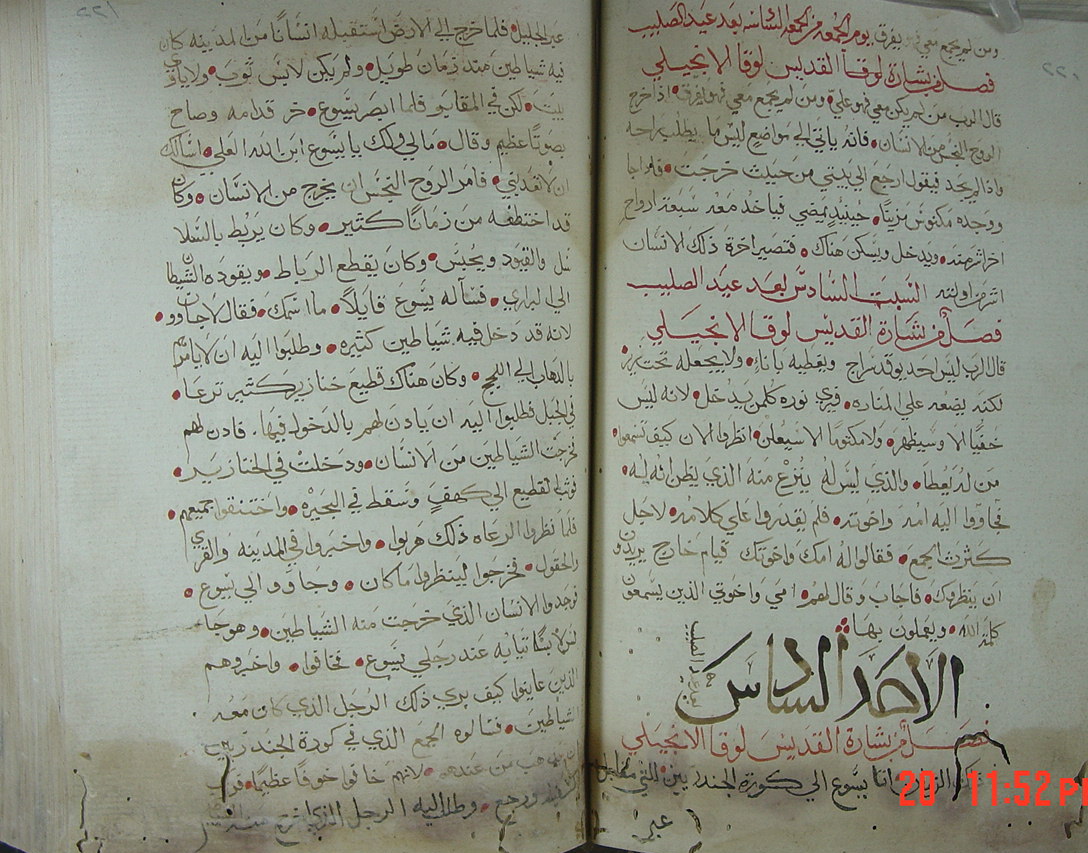 ومن لم يجمع معي فهو يفرق يوم الجمعه من الجمعه السادسه بعد عيد الصليب
فصل من بشارة القديس لوقا الانجيلي
قال الرب من لم يكن معي فهو علي • ومن لم يجمع معي فهو يفرق • اذا خرج
الروح النجس من الانسان • فانه ياتي الي مواضع ليس ما يطلب راحه
واذا لم يجد فيقول ارجع الي بيتي من حيث خرجت • فاذا جا
ووجده مكنوس مزينًا • حينيذٍ يمضي فياخذ معه سبعة ارواح
اخر اشر منه • ويدخل ويسكن هناك • فتصير اخرة ذلك الانسان
اشر من اولته السبت السادس بعد عيد الصليب
فصل من بشارة القديس لوقا الانجيلي
قال الرب ليس احد يوقد سراج ويغطيه باناء • ولا يجعله تحت سرير •
لكنه يضعه علي المناره • فيري نوره كلمن يدخل • لانه ليس
خفيًا الا وسيظهر • ولا مكتومًا الا سيعلن • انظروا الان كيف تسمعوا •
من له يُعطا • والذي ليس له ينزع منه الذي يظن انه له •
فجاووا اليه امه واخوته • فلم يقدروا علي كلامه • لاجل
كثرت الجمع • فقالوا له امك واخوتك قيام خارج يريدو
ان ينظروك • فاجاب وقال لهم • امي واخوتي الذين يسمعون
كلمة الله • ويعملون بها •
الاحد السادس
بعد عيد الصليب
فصل من بشارة القديس لوقا الانجيلي
اتا يسوع الي كورة الجندريين • التي مقابل
عبر
عبر الجليل • فلما خرج الي الارض استقبله انسانًا من المدينه كان
فيه شياطين منذ زمان طويل • ولم يكن لابس ثوب • ولا ياوي
بيت • لكن في المقابر فلما ابصر يسوع • خر قدامه وصاح
بصوتًا عظيم وقال • مالي ولك يا يسوع ابن الله العلي • اسالك
ان لا تعذبني • فامر الروح النجس ان يخرج من الانسان • وكان
قد اختطفه من زمانًا كثير • وكان يربط بالسلا
سل والقيود ويحبس • وكان يقطع الرباط • ويقوده الشيطان
الي البراري • فساله يسوع قايلاً • ما اسمك • فقال لاجاوون •
لانه قد دخل فيه شياطين كثيره • وطلبوا اليه ان لا يامرهم
بالذهاب الي اللجج • وكان هناك قطيع خنازير كثير ترعا •
في الجبل فطلبوا اليه ان ياذن لهم بالدخول فيها • فاذن لهم
فخرجت الشياطين من الانسان • ودخلت في الخنازير •
فوثب القطيع الي كهفٍ وسقط في البحيره • واختنقوا جميعهم •
فلما نظروا الرعاه ذلك هربوا • واخبروا في المدينه والقري
والحقول • فخرجوا لينظروا ما كان • وجاوو الي يسوع •
فوجدوا الانسان الذي خرجت منه الشياطين • وهو جا
لس لابسًا ثيابه عند رجلي يسوع • فخافوا • واخبروهم
الذين عاينوا كيف بري ذلك الرجل الذي كان معه
الشياطين • فسالوه الجمع الذي في كورة الجندريين
ان يذهب من عندهم • لانهم خافوا خوفًا عظيمًا • فركب
السفينه ورجع • وطلب اليه الرجل الذي خرج منه
20 11:52 PM